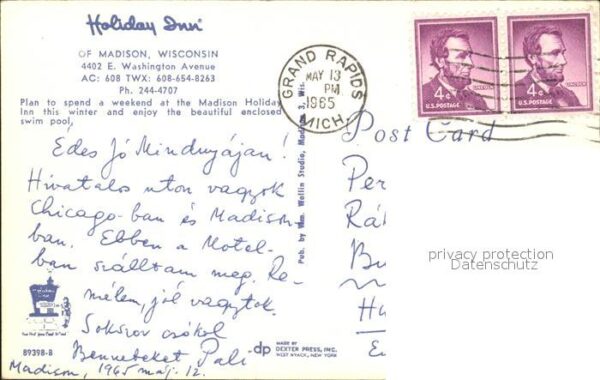 Holiday Inn®
OF MADISON, WISCONSIN
4402 E. Washington Avenue
AC: 608 TWX: 608-654-8263
Ph. 244-4707
Plan to spend a weekend at the Madison Holiday
Inn this winter and enjoy the beautiful enclosed
swim pool,
Édes Jó Mindnyájan!
Hivatalos uton vagyok
Chicago-ban és Madison-
ban. Ebben a Motel-
ban szálltam meg. Re-
mélem, jól vagytok.
Sokszor csókol
Bennebeket Pali
Madison, 1965 máj. 12.
89398-B
Pub. by Wm. Wollin Studio, Madison 3, Wis.
dp MADE BY
DEXTER PRESS, INC.
WEST NYACK, NEW YORK
GRAND RAPIDS
MAY 13
PM
1965
MICH.
4¢ LINCOLN
U.S. POSTAGE
4¢ LINCOLN
U.S. POSTAGE
Post Card
Per
Rá
Bu
Hu
privacy protection
Datenschutz